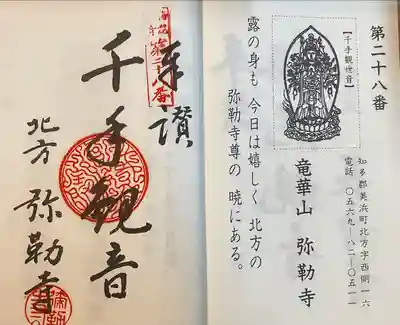 第二十八番
【千手観世音】
知多郡美浜町北方字西側一六
電話 〇五六九―八二―〇五一一
竜華山 弥勒寺
露の身も 今日は嬉しく 北方の
弥勒寺尊の 暁にある。
奉讃
第二八番
千手観音
北方 弥勒寺